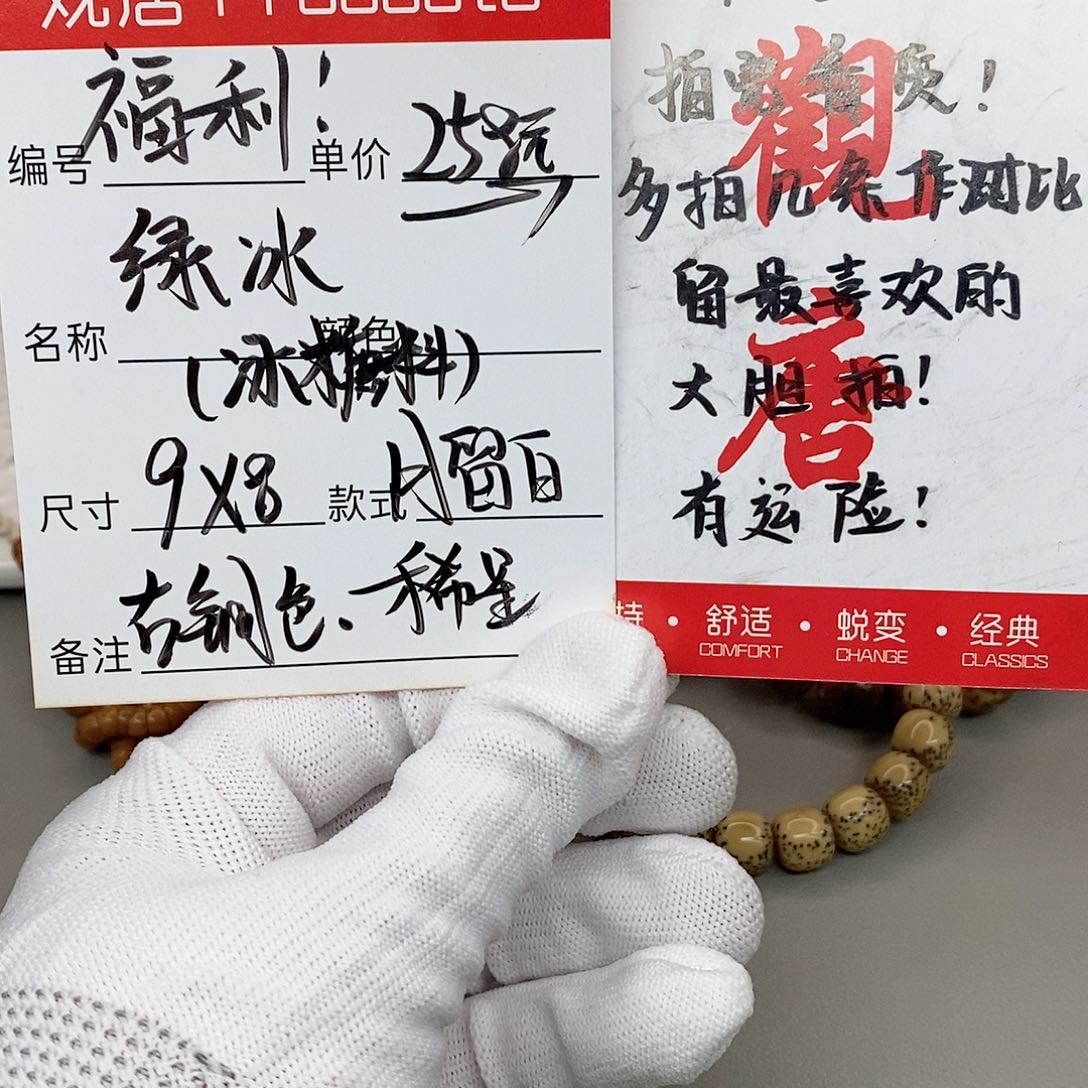 福利!
编号 单价 258元
绿冰
名称 颜色
(冰雅料)
尺寸 9X8 款式 留白
备注 古铜色、稀星
觀唐
多拍几条作对比
留最喜欢的
大胆拍!
有运险!
持 · 舒适 · 蜕变 · 经典
COMFORT CHANGE CLASSICS